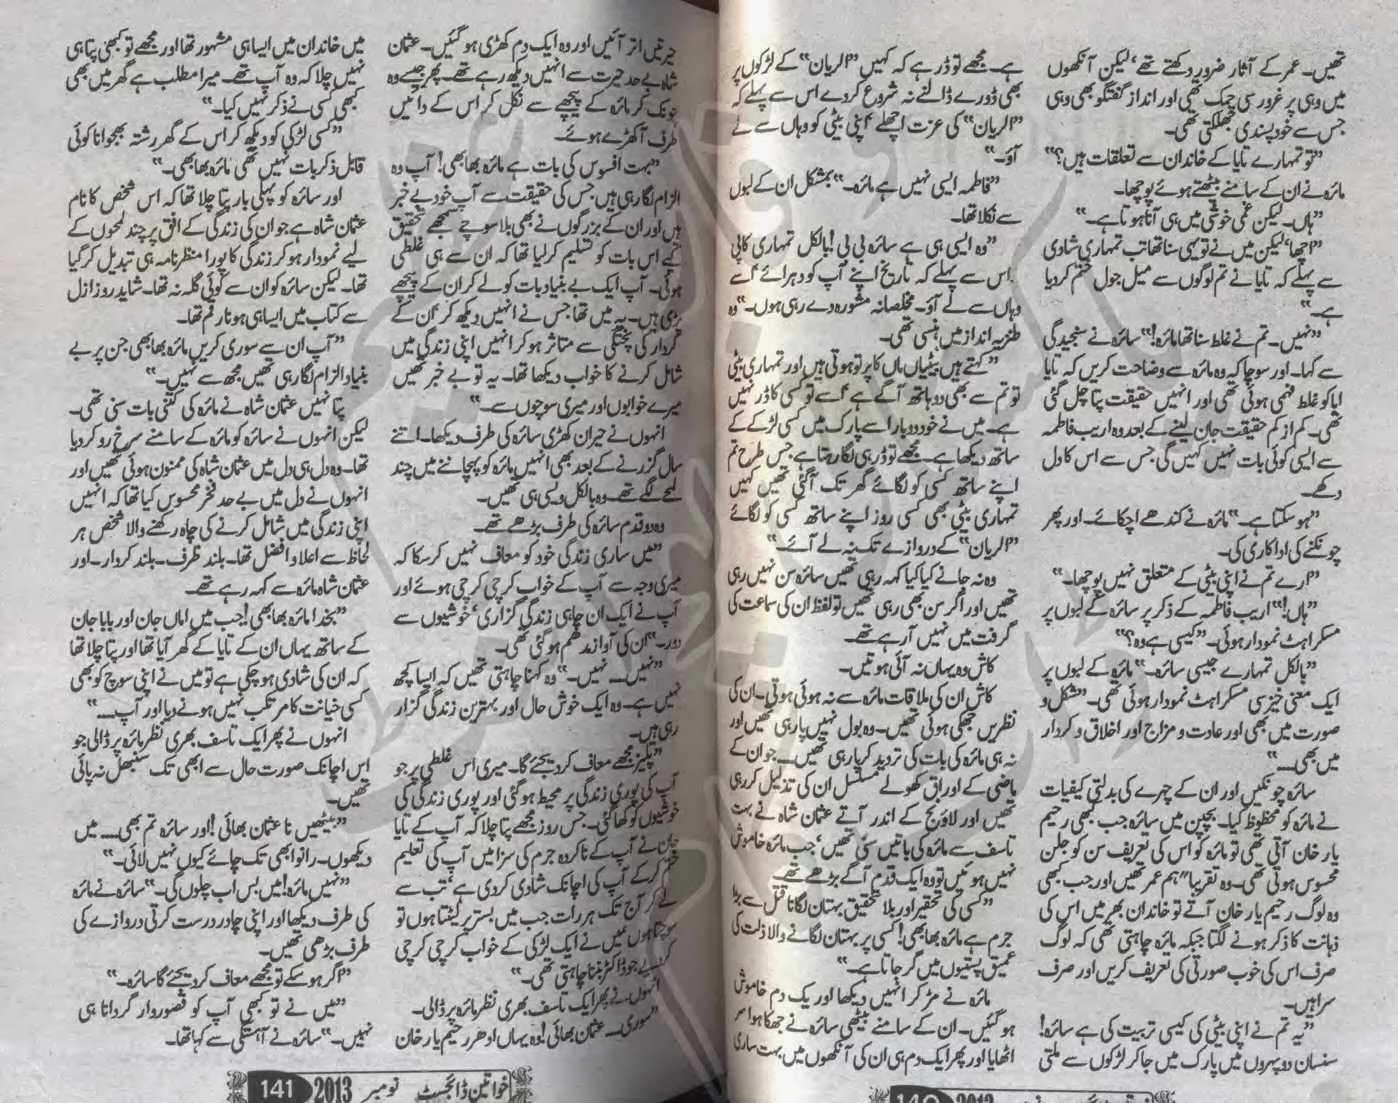 تھیں۔ عمر کے آثار ضرور دکھتے تھے، لیکن آنکھوں
میں وہی پر غرور سی چمک تھی اور انداز گفتگو بھی وہی
جس سے خود پسندی جھلکتی تھی۔
”تو تمہارے تایا کے خاندان سے تعلقات ہیں؟“
مائرہ نے ان کے سامنے بیٹھتے ہوئے پوچھا۔
”ہاں۔ لیکن غمی خوشی میں ہی آنا ہوتا ہے۔“
”اچھا، لیکن میں نے تو یہی سنا تھا تب تمہاری شادی
سے پہلے کہ تایا نے تم لوگوں سے میل جول ختم کر دیا
ہے۔“
”نہیں۔ تم نے غلط سنا تھا مائرہ!“ سائرہ نے سنجیدگی
سے کہا۔ اور سوچا کہ وہ مائرہ سے وضاحت کریں کہ تایا
ابا کو غلط فہمی ہوئی تھی اور انہیں حقیقت پتا چل گئی
تھی۔ کم از کم حقیقت جان لینے کے بعد وہ اریب فاطمہ
سے ایسی کوئی بات نہیں کہیں گی جس سے اس کا دل
دکھے۔
”ہو سکتا ہے۔“ مائرہ نے کندھے اچکائے۔ اور پھر
چونکنے کی اداکاری کی۔
”ارے تم نے اپنی بیٹی کے متعلق نہیں پوچھا۔“
”ہاں!“ اریب فاطمہ کے ذکر پر سائرہ کے لبوں پر
مسکراہٹ نمودار ہوئی۔ ”کیسی ہے وہ؟“
”بالکل تمہارے جیسی سائرہ۔“ مائرہ کے لبوں پر
ایک معنی خیز سی مسکراہٹ نمودار ہوئی تھی۔ ”شکل و
صورت میں بھی اور عادت و مزاج اور اخلاق و کردار
میں بھی۔۔۔“
سائرہ چونکیں اور ان کے چہرے کی بدلتی کیفیات
نے مائرہ کو محظوظ کیا۔ بچپن میں سائرہ جب بھی رحیم
یار خان آتی تھی تو مائرہ کو اس کی تعریف سن کو جلن
محسوس ہوتی تھی۔ وہ تقریبا ”ہم عمر تھیں اور جب بھی
وہ لوگ رحیم یار خان آتے تو خاندان بھر میں اس کی
ذہانت کا ذکر ہونے لگتا جبکہ مائرہ چاہتی تھی کہ لوگ
صرف اس کی خوب صورتی کی تعریف کریں اور صرف
سراہیں۔
”یہ تم نے اپنی بیٹی کی کیسی تربیت کی ہے سائرہ!
سنسان دوپہروں میں پارک میں جا کر لڑکوں سے ملتی
ہے۔ مجھے تو ڈر ہے کہ کہیں ”الریان“ کے لڑکوں پر
بھی ڈورے ڈالنے نہ شروع کر دے اس سے پہلے کہ
”الریان“ کی عزت اچھلے اپنی بیٹی کو وہاں سے لے
آؤ۔“
”فاطمہ ایسی نہیں ہے مائرہ۔“ بمشکل ان کے لبوں
سے نکلا تھا۔
”وہ ایسی ہی ہے سائرہ بی بی! بالکل تمہاری کاپی
اس سے پہلے کہ تاریخ اپنے آپ کو دہرائے اسے
وہاں سے لے آؤ۔ مخلصانہ مشورہ دے رہی ہوں۔“ وہ
طنزیہ انداز میں ہنسی تھی۔
”کہتے ہیں بیٹیاں ماں کا پرتو ہوتی ہیں اور تمہاری بیٹی
تو تم سے بھی دو ہاتھ آگے ہے اسے تو کسی کا ڈر نہیں
ہے۔ میں نے خود دو بار اسے پارک میں کسی لڑکے کے
ساتھ دیکھا ہے۔ مجھے تو ڈر ہی لگا رہتا ہے جس طرح تم
اپنے ساتھ کسی کو لگائے گھر تک آ گئی تھیں کہیں
تمہاری بیٹی بھی کسی روز اپنے ساتھ کسی کو لگائے
”الریان“ کے دروازے تک نہ لے آئے۔“
وہ نہ جانے کیا کیا کہہ رہی تھیں سائرہ سن نہیں رہی
تھیں اور اگر سن بھی رہی تھیں تو لفظ ان کی سماعت کی
گرفت میں نہیں آ رہے تھے۔
کاش وہ یہاں نہ آئی ہوتیں۔
کاش ان کی ملاقات مائرہ سے نہ ہوئی ہوتی۔ ان کی
نظریں جھکی ہوئی تھیں۔ وہ بول نہیں پا رہی تھیں اور
نہ ہی مائرہ کی بات کی تردید کر پا رہی تھیں۔۔۔ جو ان کے
ماضی کے اوراق کھولے مسلسل ان کی تذلیل کر رہی
تھیں اور لاؤنج کے اندر آتے عثمان شاہ نے بہت
تاسف سے مائرہ کی باتیں سنی تھیں، جب مائرہ خاموش
نہیں ہوئیں تو وہ ایک قدم آگے بڑھے تھے۔
”کسی کی تحقیر اور بلا تحقیق بہتان لگانا قتل سے بڑا
جرم ہے مائرہ بھابھی! کسی پر بہتان لگانے والا ذلت کی
عمیق پستیوں میں گر جاتا ہے۔“
مائرہ نے مڑ کر انہیں دیکھا اور یک دم خاموش
ہو گئیں۔ ان کے سامنے بیٹھی سائرہ نے جھکا ہوا سر
اٹھایا اور پھر ایک دم ہی ان کی آنکھوں میں بہت ساری
140
حیرتیں اتر آئیں اور وہ ایک دم کھڑی ہو گئیں۔ عثمان
شاہ بے حد حیرت سے انہیں دیکھ رہے تھے۔ پھر جیسے وہ
چونک کر مائرہ کے پیچھے سے نکل کر اس کے دائیں
طرف آ کھڑے ہوئے۔
”بہت افسوس کی بات ہے مائرہ بھابھی! آپ وہ
الزام لگا رہی ہیں جس کی حقیقت سے آپ خود بے خبر
ہیں اور ان کے بزرگوں نے بھی بلا سوچے سمجھے تحقیق
کیے اس بات کو تسلیم کر لیا تھا کہ ان سے ہی غلطی
ہوئی۔ آپ ایک بے بنیاد بات کو لے کر ان کے پیچھے
پڑی ہیں۔ یہ میں تھا جس نے انہیں دیکھ کر ان کے
کردار کی پختگی سے متاثر ہو کر انہیں اپنی زندگی میں
شامل کرنے کا خواب دیکھا تھا۔ یہ تو بے خبر تھیں
میرے خوابوں اور میری سوچوں سے۔“
انہوں نے حیران کھڑی سائرہ کی طرف دیکھا۔ اتنے
سال گزرنے کے بعد بھی انہیں سائرہ کو پہچاننے میں چند
لمحے لگے تھے۔ وہ بالکل ویسی ہی تھیں۔
وہ دو قدم سائرہ کی طرف بڑھے تھے۔
”میں ساری زندگی خود کو معاف نہیں کر سکا کہ
میری وجہ سے آپ کے خواب کرچی کرچی ہوئے اور
آپ نے ایک ان چاہی زندگی گزاری، خوشیوں سے
دور۔“ ان کی آواز مدھم ہو گئی تھی۔
”نہیں۔۔۔ نہیں۔“ وہ کہنا چاہتی تھیں کہ ایسا کچھ
نہیں ہے۔ وہ ایک خوش حال اور بہترین زندگی گزار
رہی ہیں۔
”پلیز مجھے معاف کر دیجئے گا۔ میری اس غلطی پر جو
آپ کی پوری زندگی پر محیط ہو گئی اور پوری زندگی کی
خوشیوں کو کھا گئی۔ جس روز مجھے پتا چلا کہ آپ کے تایا
جان نے آپ کے ناکردہ جرم کی سزا میں آپ کی تعلیم
ختم کر کے آپ کی اچانک شادی کر دی ہے، تب سے
لے کر آج تک ہر رات جب میں بستر پر لیٹتا ہوں تو
سوچتا ہوں میں نے ایک لڑکی کے خواب کرچی کرچی
کر دیے جو ڈاکٹر بننا چاہتی تھی۔“
انہوں نے پھر ایک تاسف بھری نظر مائرہ پر ڈالی۔
”سوری۔۔۔ عثمان بھائی! وہ یہاں ادھر رحیم یار خان
میں خاندان میں ایسا ہی مشہور تھا اور مجھے تو کبھی پتا ہی
نہیں چلا کہ وہ آپ تھے۔ میرا مطلب ہے گھر میں بھی
کبھی کسی نے ذکر نہیں کیا۔“
”کسی لڑکی کو دیکھ کر اس کے گھر رشتہ بھجوانا کوئی
قابل ذکر بات نہیں تھی مائرہ بھابھی۔“
اور سائرہ کو پہلی بار پتا چلا تھا کہ اس شخص کا نام
عثمان شاہ ہے جو ان کی زندگی کے افق پر چند لمحوں کے
لیے نمودار ہو کر زندگی کا پورا منظر نامہ ہی تبدیل کر گیا
تھا۔ لیکن سائرہ کو ان سے کوئی گلہ نہ تھا۔ شاید روز ازل
سے کتاب میں ایسا ہی ہونا رقم تھا۔
”آپ ان سے سوری کریں مائرہ بھابھی جن پر بے
بنیاد الزام لگا رہی تھیں مجھ سے نہیں۔“
پتا نہیں عثمان شاہ نے مائرہ کی کتنی بات سنی تھی۔
لیکن انہوں نے سائرہ کو مائرہ کے سامنے سرخ رو کر دیا
تھا۔ وہ دل ہی دل میں عثمان شاہ کی ممنون ہوئی تھیں اور
انہوں نے دل میں بے حد فخر محسوس کیا تھا کہ انہیں
اپنی زندگی میں شامل کرنے کی چاہ رکھنے والا شخص ہر
لحاظ سے اعلا و افضل تھا۔ بلند ظرف۔ بلند کردار۔ اور
عثمان شاہ مائرہ سے کہہ رہے تھے۔
”بخدا مائرہ بھابھی! جب میں اماں جان اور بابا جان
کے ساتھ یہاں ان کے تایا کے گھر آیا تھا اور پتا چلا تھا
کہ ان کی شادی ہو چکی ہے تو میں نے اپنی سوچ کو بھی
کسی خیانت کا مرتکب نہیں ہونے دیا اور آپ۔۔۔“
انہوں نے پھر ایک تاسف بھری نظر مائرہ پر ڈالی جو
اس اچانک صورت حال سے ابھی تک سنبھل نہ پائی
تھیں۔
”بیٹھیں نا عثمان بھائی! اور سائرہ تم بھی۔۔۔ میں
دیکھوں۔ رانو ابھی تک چائے کیوں نہیں لائی۔“
”نہیں مائرہ! میں بس اب چلوں گی۔“ سائرہ نے مائرہ
کی طرف دیکھا اور اپنی چادر درست کرتی دروازے کی
طرف بڑھی تھیں۔
”اگر ہو سکے تو مجھے معاف کر دیجئے گا سائرہ۔“
”میں نے تو کبھی آپ کو قصوروار گردانا ہی
نہیں۔“ سائرہ نے آہستگی سے کہا تھا۔
خواتین ڈائجسٹ نومبر 2013 141